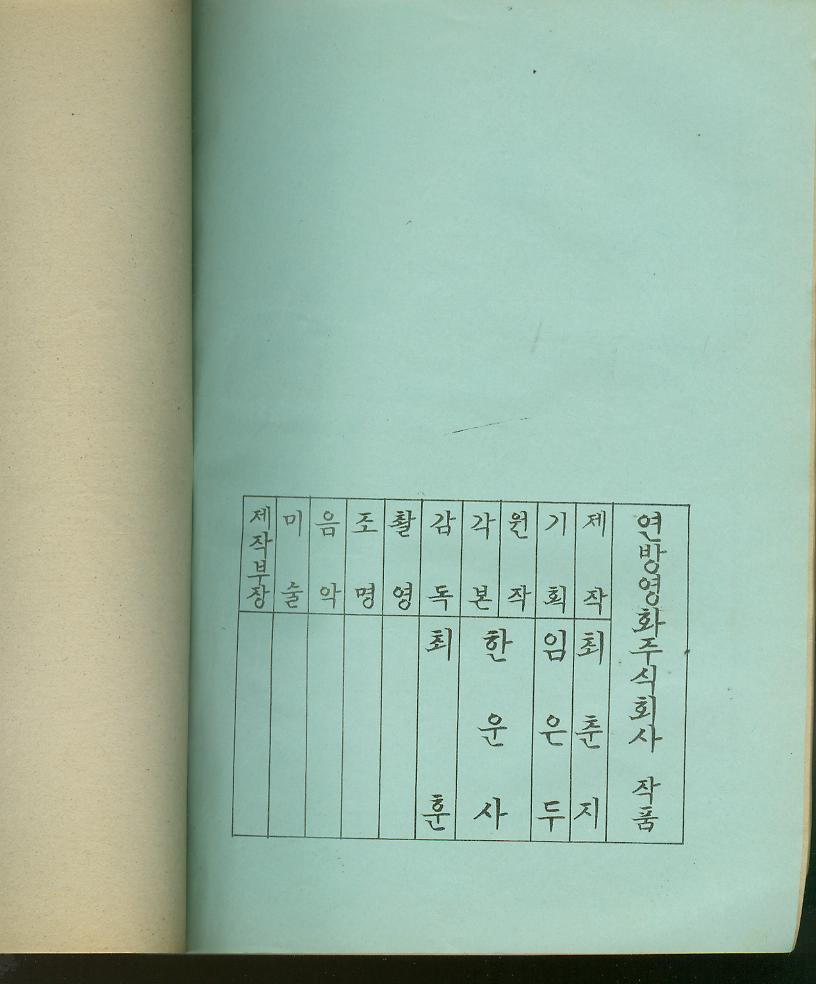 연방영화주식회사 작품
제작 최춘지
기획 임은두
원작
각본 한운사
감독 최훈
촬영
조명
음악
미술
제작부장